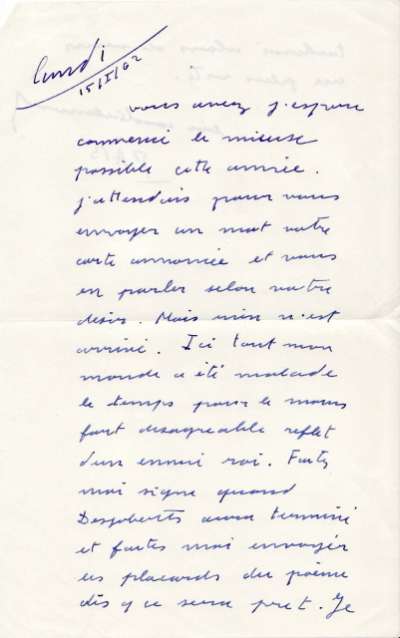 Lundi
15/I/62
vous avez j'espere
commencé le mieux
possible cette année.
j'attendais pour vous
envoyer un mot votre
carte annoncée et vous
en parler selon votre
désir. Mais rien n'est
arrivé. Ici tout mon
monde a été malade
le temps pour le moins
fort désagreable reflet
d'un ennui roi. Faites
moi signe quand
Desjoberts aura terminé
et faites moi envoyer
les placards du poème
dès que sera pret. Je